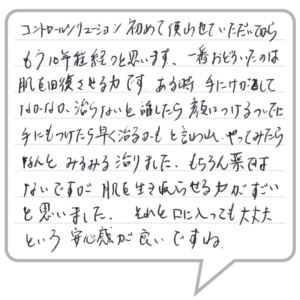 コントロールソリューション初めて使わせていただいてから
もう10年程経つと思います。一番おどろいたのは
肌を回復させる力です。ある時 手にけがして
なかなか治らないと話したら顔につけるついでに
手にもつけたら早く治るかもと言われ、やってみたら
なんと みるみる治りました。もちろん薬では
ないですが 肌を生き返らせる力がすごい
と思いました。 それと口に入っても大丈夫
という 安心感が良いですね